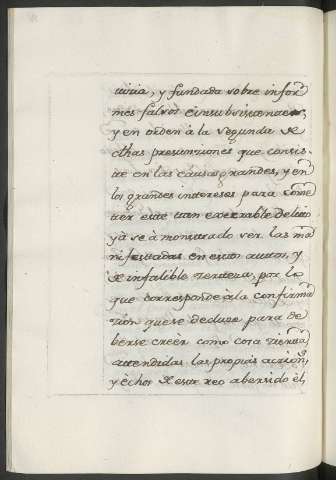 uicia, y fundada sobre infor
mes falsos é insubsistentes,
y en orden â la segunda de
dhas presunziones que consis-
te en las causas grandes, y en
los grandes intereses para come
ter este tan execrable delito
yà se à monstrado ver las ma
nifestadas en estos autos, y
de infalible zerteza, por lo
que corresponde àla confirma
zion que se deduze para de
berse creer como cosa zierta
attendidas las propias accion.s
y échos de este reo aber sido él,